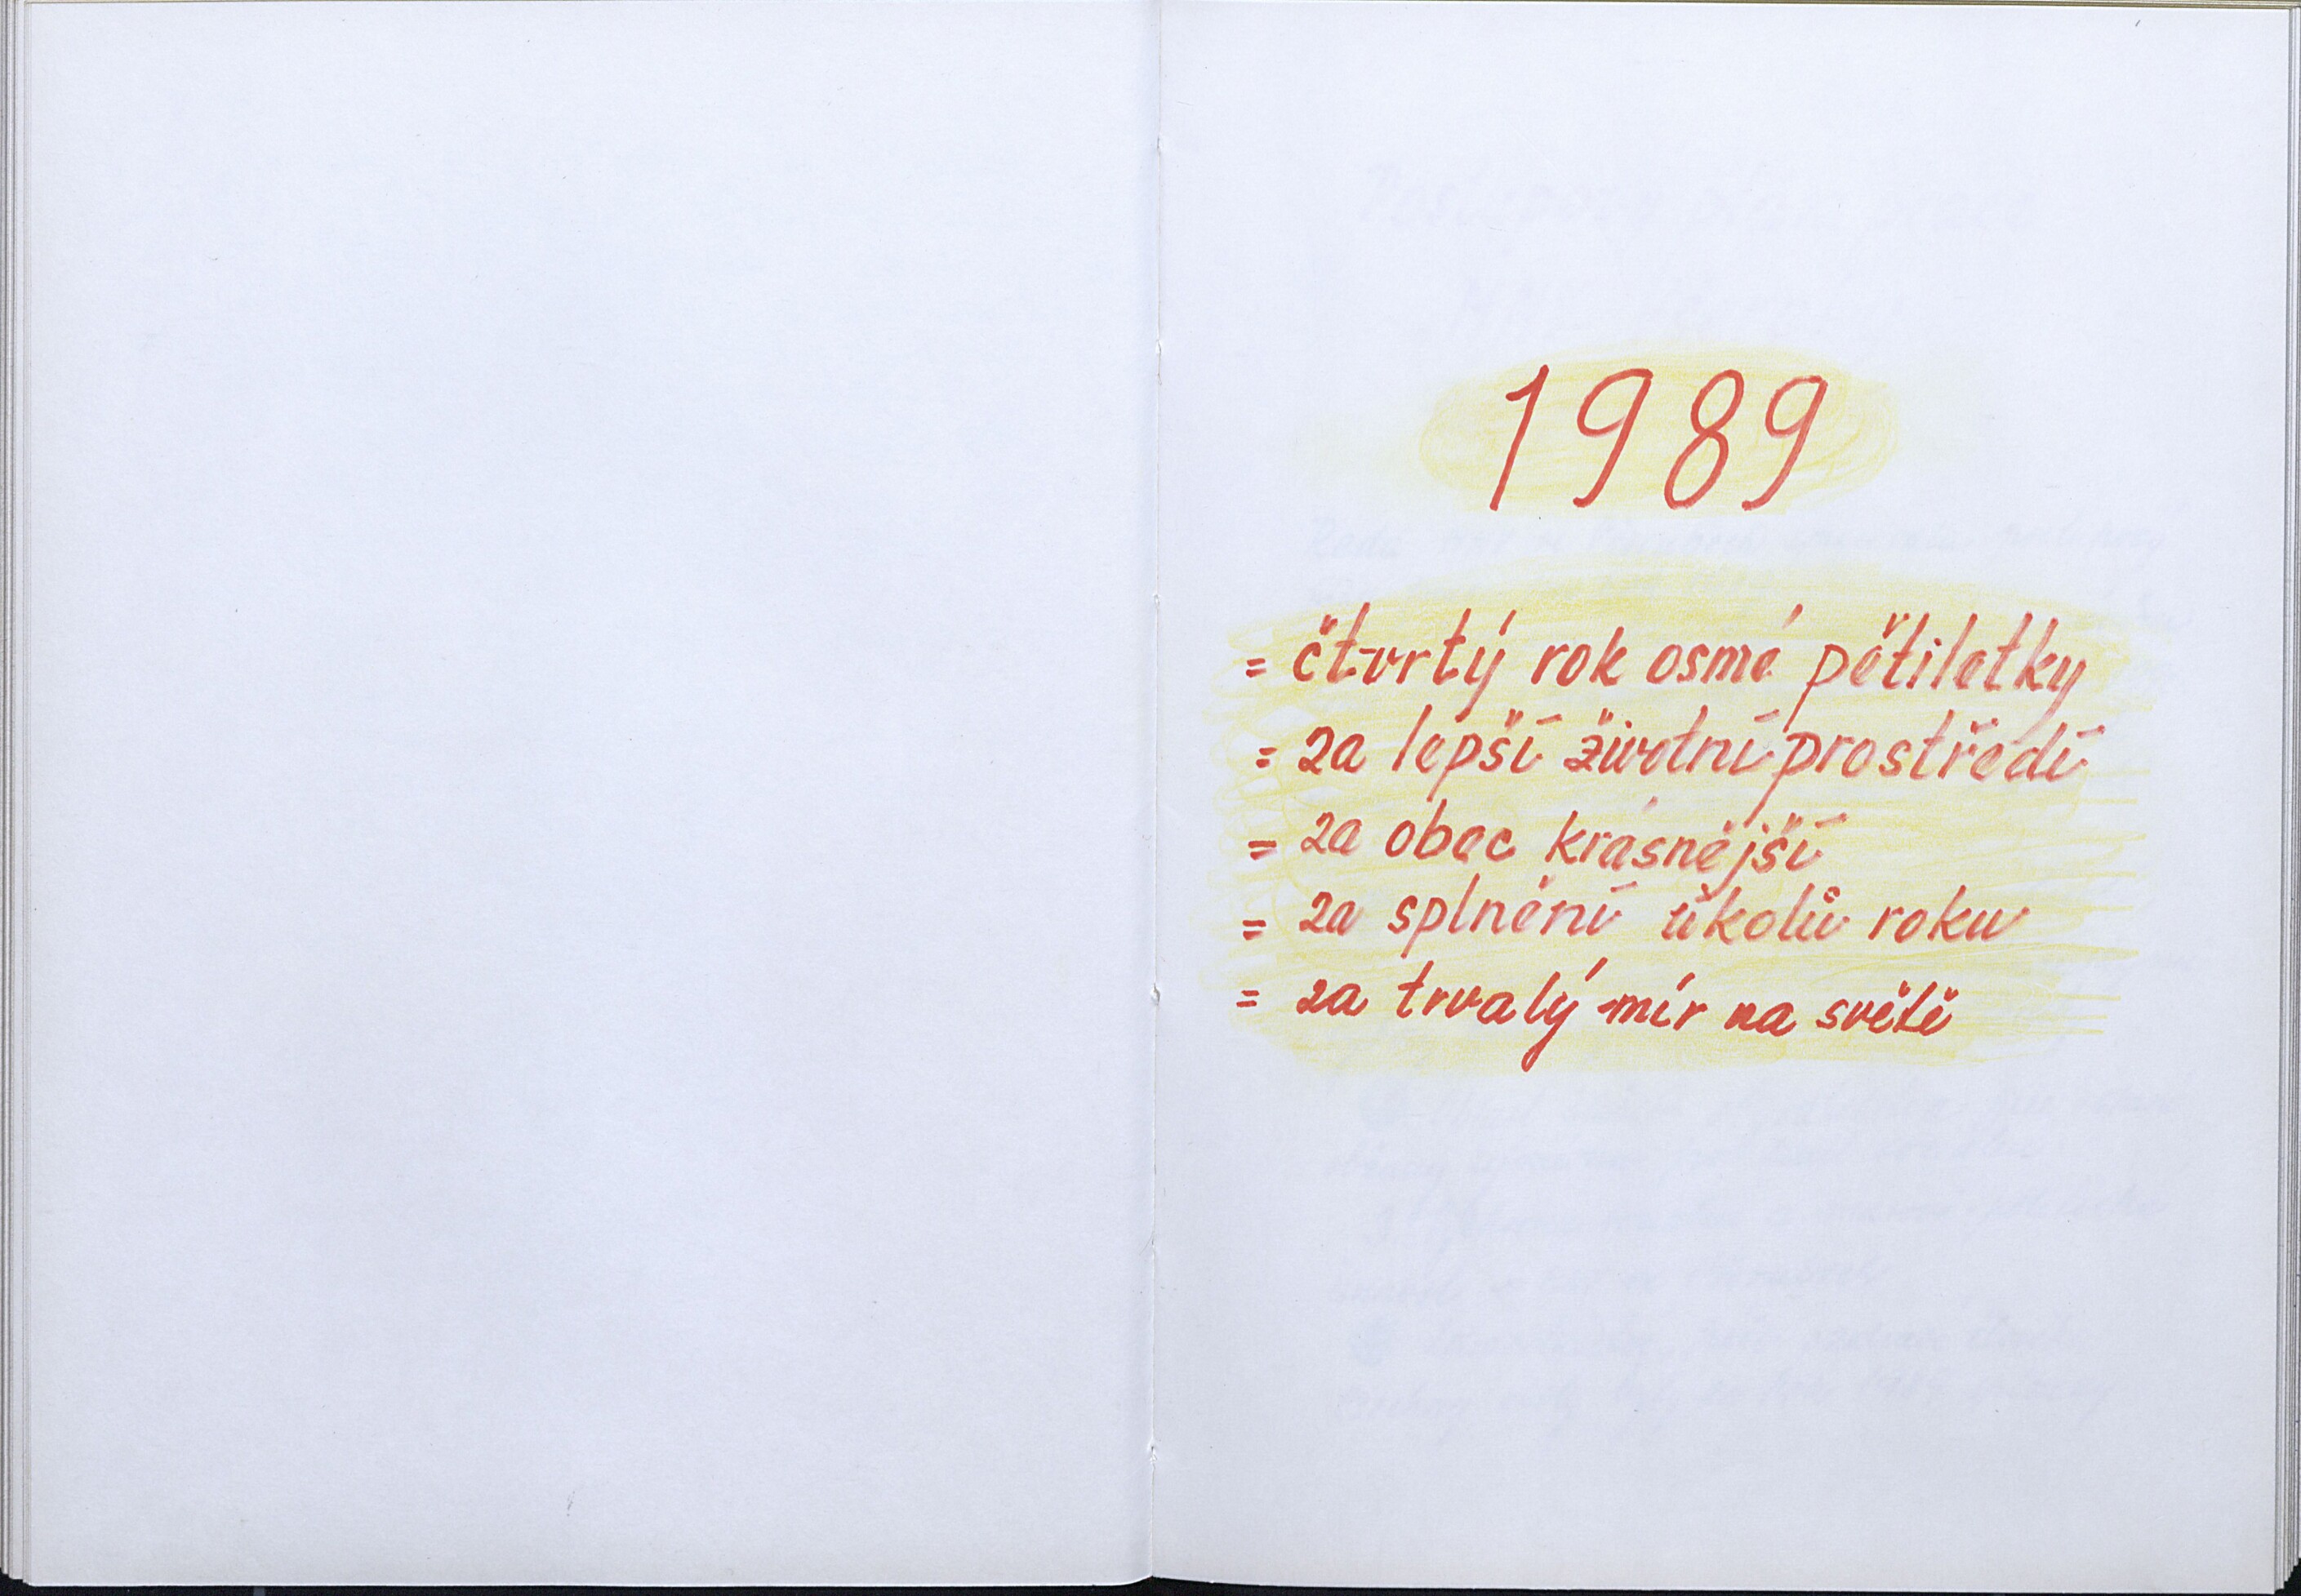 1989
= čtvrtý rok osmé pětiletky
= za lepší životní prostředí
= za obec krásnější
= za splnění úkolů roku
= za trvalý mír na světě